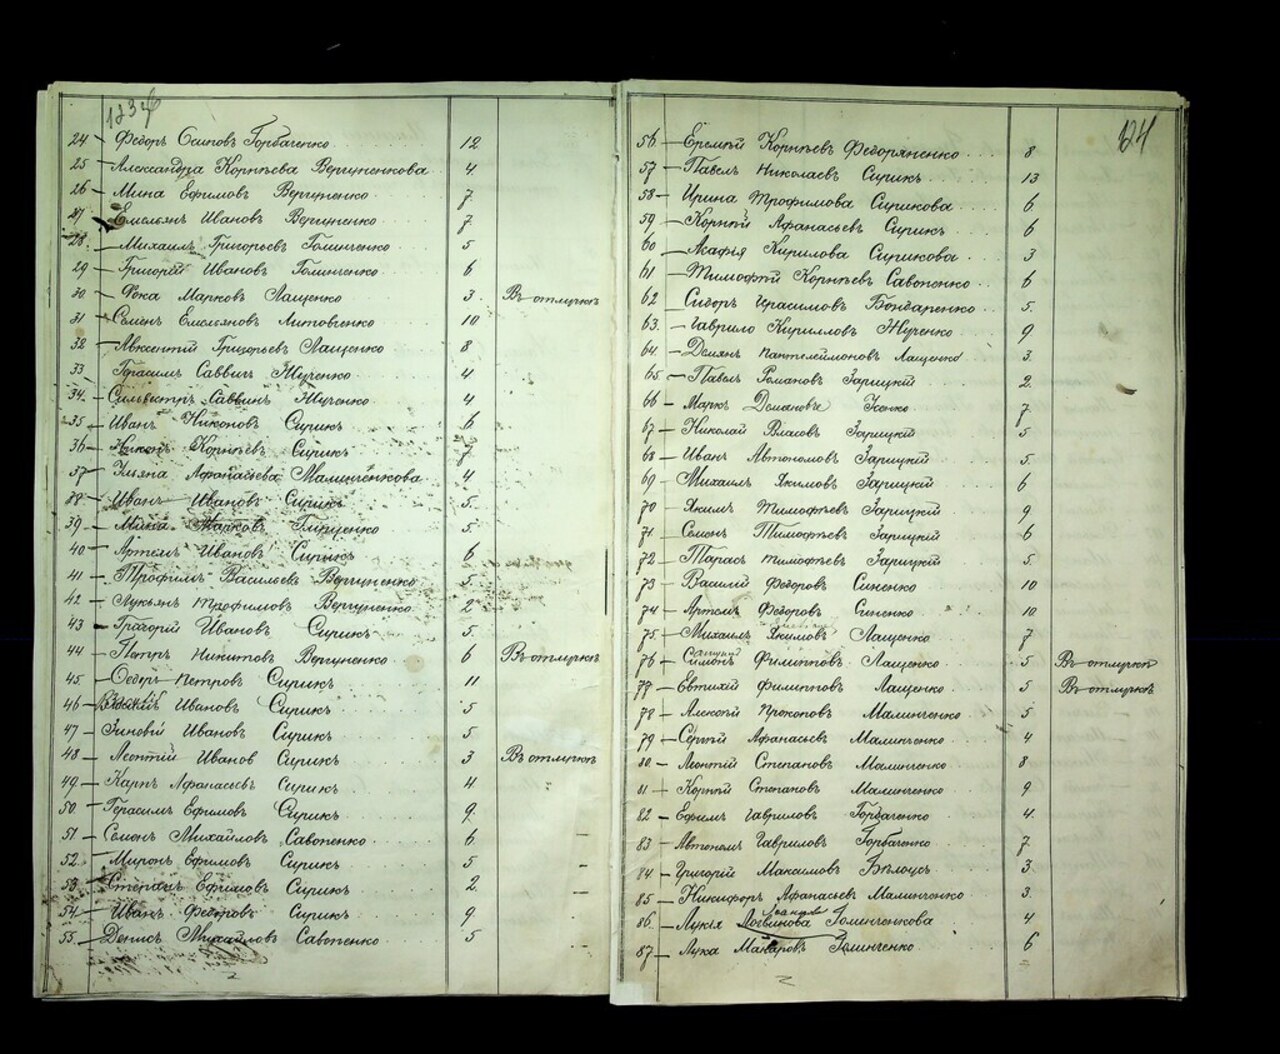 24 Федоръ Осиповъ Горбаченко 12
25 Александра Корнѣева Вергуненкова 4
26 Мина Ефимовъ Вергуненко 7
27 Емельянъ Ивановъ Вергуненко 7
28 Михаилъ Григорьевъ Голинченко 5
29 Григорій Ивановъ Голинченко 6
30 Фока Марковъ Лащенко 3 Въ отлучкѣ
31 Семенъ Емельяновъ Литовченко 10
32 Авксентій Григорьевъ Лащенко 8
33 Герасимъ Саввичъ Жученко 4
34 Сильвестръ Саввинъ Жученко 4
35 Иванъ Никоновъ Сирикъ 6
36 Никонъ Корнѣевъ Сирикъ 7
37 Ульяна Афанасьева Малинченкова 4
38 Иванъ Ивановъ Сирикъ 5
39 Мина Марковъ 5
40 Артемъ Ивановъ Сирикъ 6
41 Трофимъ Васильевъ Вергуненко 5
42 Лукьянъ Трофимовъ Вергуненко 2
43 Григорій Ивановъ Сирикъ 5
44 Петръ Никитовъ Вергуненко 6 Въ отлучкѣ
45 Федоръ Петровъ Сирикъ 11
46 Ивановъ Сирикъ 5
47 Зиновій Ивановъ Сирикъ 5
48 Леонтій Иванов Сирикъ 3 Въ отлучкѣ
49 Карпъ Афанасьевъ Сирикъ 4
50 Герасимъ Ефимовъ Сирикъ 9
51 Семенъ Михайловъ Савопенко 6
52 Миронъ Ефимовъ Сирикъ 5
53 Степанъ Ефимовъ Сирикъ 2
54 Иванъ Федоровъ Сирикъ 9
55 Денисъ Михайловъ Савопенко 5
124
56 Еремѣй Корнѣевъ Федоряненко 8
57 Павелъ Николаевъ Сирикъ 13
58 Ирина Трофимова Сирикова 6
59 Корнѣй Афанасьевъ Сирикъ 6
60 Акафія Кирилова Сирикова 3
61 Тимофѣй Корнѣевъ Савопенко 6
62 Сидоръ Герасимовъ Бондаренко 5
63 Гаврило Кирилловъ Жученко 9
64 Демянъ Пантелеймоновъ Лащенко 3
65 Павелъ Романовъ Зарицкій 2
66 Маркъ Демяновъ Усенко 7
67 Николай Власовъ Зарицкій 5
68 Иванъ Автономовъ Зарицкій 5
69 Михаилъ Якимовъ Зарицкій 6
70 Якимъ Тимофѣевъ Зарицкій 9
71 Семенъ Тимофѣевъ Зарицкій 6
72 Тарасъ Тимофѣевъ Зарицкій 5
73 Василій Федоровъ Синенко 10
74 Артемъ Федоровъ Синенко 10
75 Михаилъ Якимовъ Лащенко 7
76 Симонъ Филипповъ Лащенко 5 Въ отлучкѣ
77 Евтихій Филипповъ Лащенко 5 Въ отлучкѣ
78 Алексѣй Прокоповъ Малинченко 5
79 Сергѣй Афанасьевъ Малинченко 4
80 Леонтій Степановъ Малинченко 8
81 Корнѣй Степановъ Малинченко 9
82 Ефимъ Гавриловъ Горбаченко 4
83 Автономъ Гавриловъ Горбаченко 7
84 Григорій Максимовъ Бѣлоусъ 3
85 Никифоръ Афанасьевъ Малинченко 3
86 Лукія Логвинова Голинченкова 4
87 Лука Макаровъ Голинченко 6